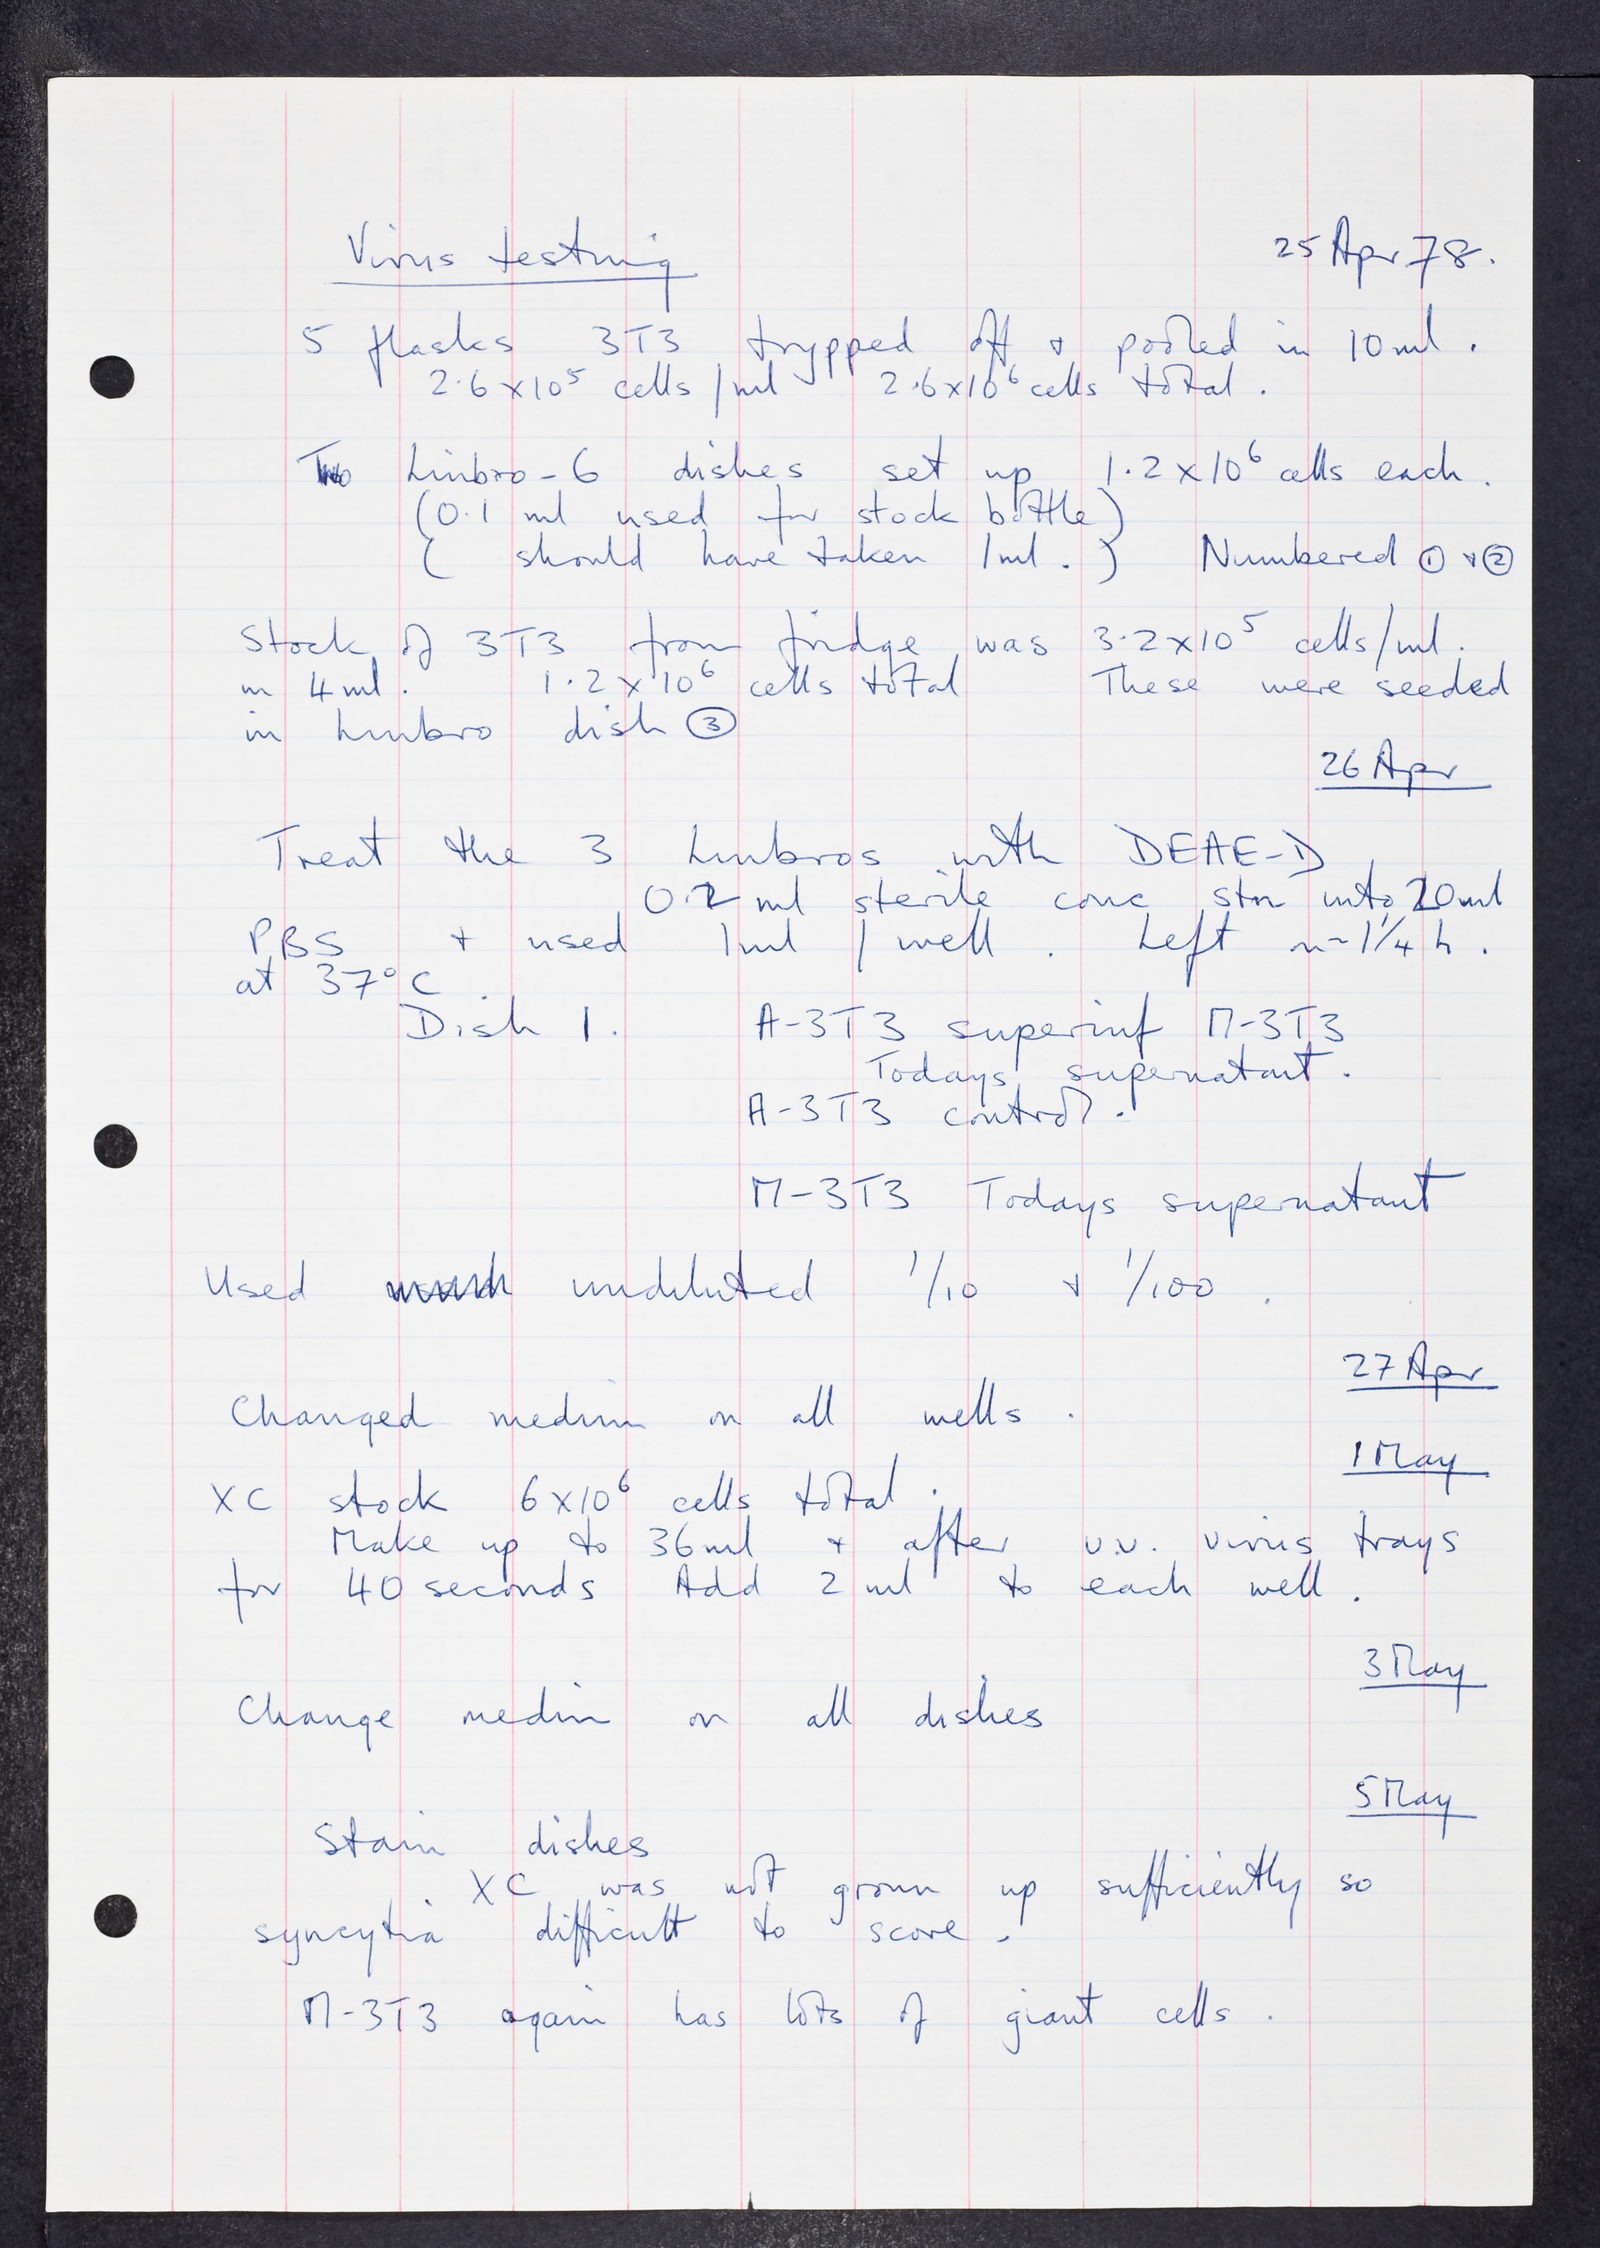 Virus testing
25 Apr 78.
5 flasks 3T3 trypped off + pooled in 10 ml.
2.6 x 10⁵ cells / ml 2.6 x 10⁶ cells total.
Two Linbro-6 dishes set up 1.2 x 10⁶ cells each.
(0.1 ml used for stock bottle)
( should have taken 1 ml. ) Numbered ① + ②
Stock of 3T3 from fridge was 3.2 x 10⁵ cells/ml.
in 4 ml. 1.2 x 10⁶ cells total These were seeded
in Linbro dish ③
26 Apr
Treat the 3 Linbros with DEAE-D
0.2 ml sterile conc stn into 20 ml
PBS + used 1 ml / well. Left ~ 1¼ h.
at 37°C.
Dish 1. A-3T3 superinf M-3T3
Todays supernatant.
A-3T3 control.
M-3T3 Todays supernatant
Used undiluted 1/10 + 1/100.
27 Apr
Changed medium on all wells.
1 May
XC stock 6 x 10⁶ cells total.
Make up to 36 ml + after u.v. virus trays
for 40 seconds Add 2 ml to each well.
3 May
Change medium on all dishes
5 May
Stain dishes
XC was not grown up sufficiently so
syncytia difficult to score.
M-3T3 again has lots of giant cells.